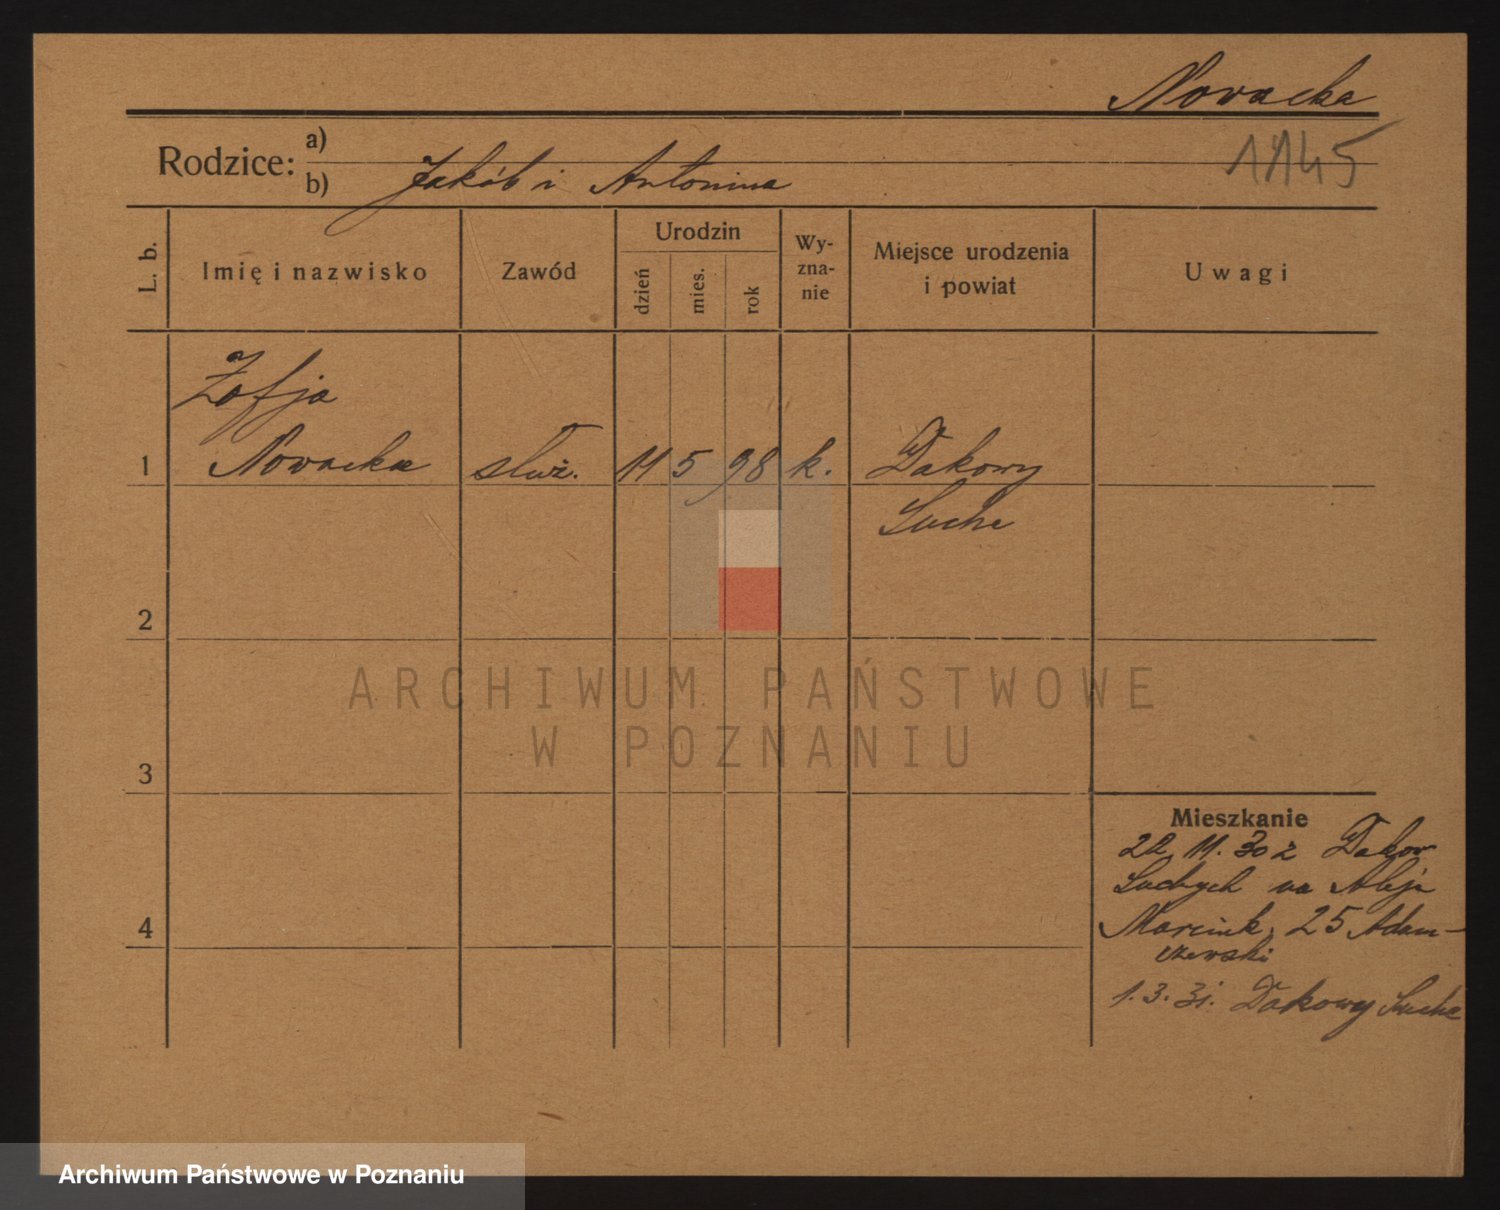 Nowacka
1145
Rodzice: a)
b) Jakób i Antonina
L. b.
Imię i nazwisko
Zawód
Urodzin
dzień
mies.
rok
Wy-
zna-
nie
Miejsce urodzenia
i powiat
Uwagi
Zofja
1 Nowacka służ. 11 5 98 k. Dakowy
Suche
2
ARCHIWUM PAŃSTWOWE
W POZNANIU
3
Mieszkanie
22.11.30 z Dakow
Suchych na Aleje
4 Marcink. 25 Adam-
czewski
1.3.31. Dakowy Suche
Archiwum Państwowe w Poznaniu